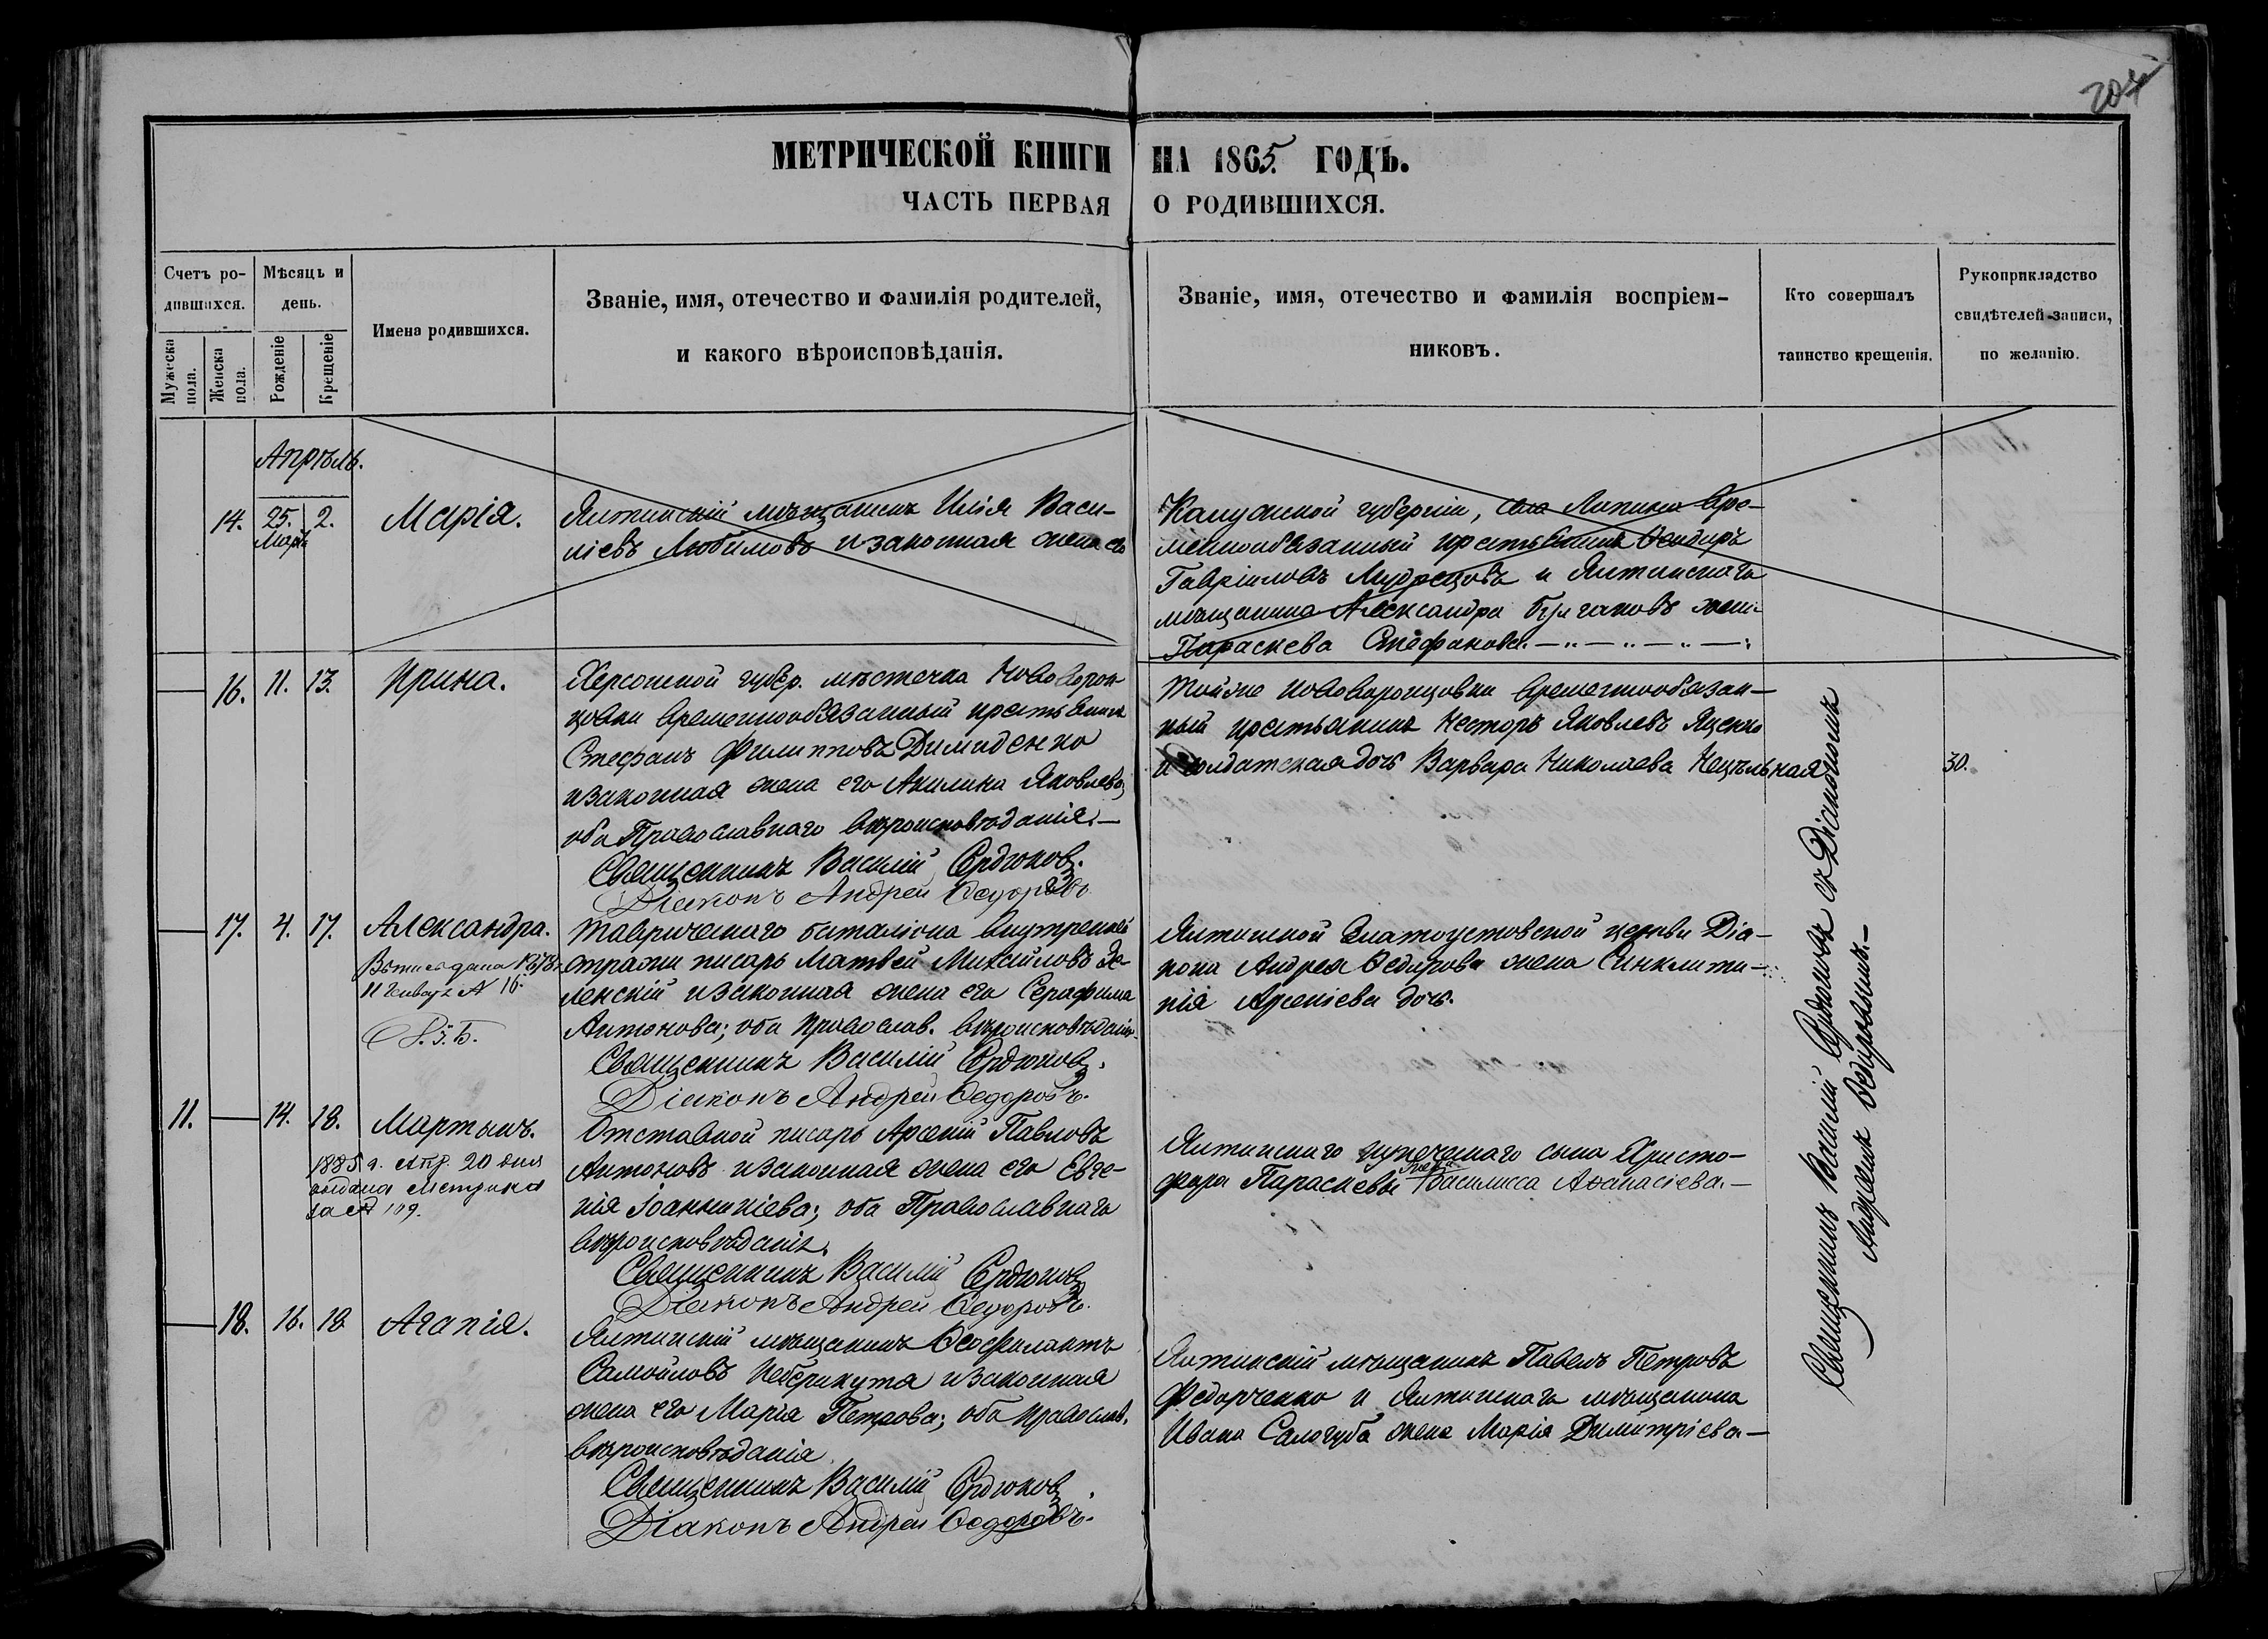 204
МЕТРИЧЕСКОЙ КНИГИ НА 1865. ГОДЪ.
ЧАСТЬ ПЕРВАЯ О РОДИВШИХСЯ.
Счетъ ро-
дившихся.
Мужеска пола.
Женска пола.
Мѣсяць и
день.
Рожденіе
Крещеніе
Имена родившихся.
Званіе, имя, отечество и фамилія родителей,
и какого вѣроисповѣданія.
Званіе, имя, отечество и фамилія воспріем-
никовъ.
Кто совершалъ
таинство крещенія.
Рукоприкладство
свидѣтелей записи,
по желанію.
Апрѣль.
14. 25. Мар. 2. Марія.
Ялтинскій мѣщанинъ Илія Васи-
ліевъ Любимовъ изаконная жена его
Калужской губерніи, села Липина вре-
меннообязанный крестьянинъ Ѳеодоръ
Гавріиловъ Мудрецовъ и Ялтинскаго
мѣщанина Александра Булгаковъ жена
Параскева Стефанова.
16. 11. 13. Ирина.
Херсонской губер. мѣстечка Нововорон
цовки временнообязанный крестьянинъ
Стефанъ Филипповъ Димиденко
изаконная жена его Акилина Яковлева,
оба Православнаго вѣроисповѣданія.—
Священникъ Василій Сердюковъ.
Діаконъ Андрей Ѳедоровъ
Тойже Нововоронцовки временнообязан-
ный крестьянинъ Несторъ Яковлевъ Яценко
и солдатская дочь Варвара Николаева Нецѣльная
30.
17. 4. 17. Александра.
11 Генваря № 16.
Таврическаго баталіона внутренней
стражи писарь Матвей Михайловъ Зе-
ленскій изаконная жена его Серафима
Антонова; оба православ. вѣроисповѣданія.
Священникъ Василій Сердюковъ.
Діаконъ Андрей Ѳедоровъ.
Ялтинской Златоустовской церкви Діа-
кона Андрея Ѳедорова жена Синклити-
кія Арсеніева дочь.
11. 14. 18. Мартынъ.
1885 г. Апр. 20 дня
выдана Метрика
за № 109.
Отставной писарь Арсеній Павловъ
Антоновъ изаконная жена его Евге-
нія Іоанникіева; оба Православнаго
вѣроисповѣданія.
Священникъ Василій Сердюковъ
Діаконъ Андрей Ѳедоровъ.
Ялтинскаго купеческаго сына Христо-
фора Параскевы жена Василисса Аѳанасіева.—
18. 16. 18. Агапія.
Ялтинскій мѣщанинъ Ѳеофилактъ
Самойловъ Неберикута изаконная
жена его Марія Петрова; оба православ.
вѣроисповѣданія
Священникъ Василій Сердюковъ.
Діаконъ Андрей Ѳедоровъ.
Ялтинскій мѣщанинъ Павелъ Петровъ
Федорченко и Ялтинскаго мѣщанина
Ивана Салогуба жена Марія Димитріева—
Священникъ Василій Сердюковъ съ Діакономъ
Андреемъ Ѳедоровымъ.—